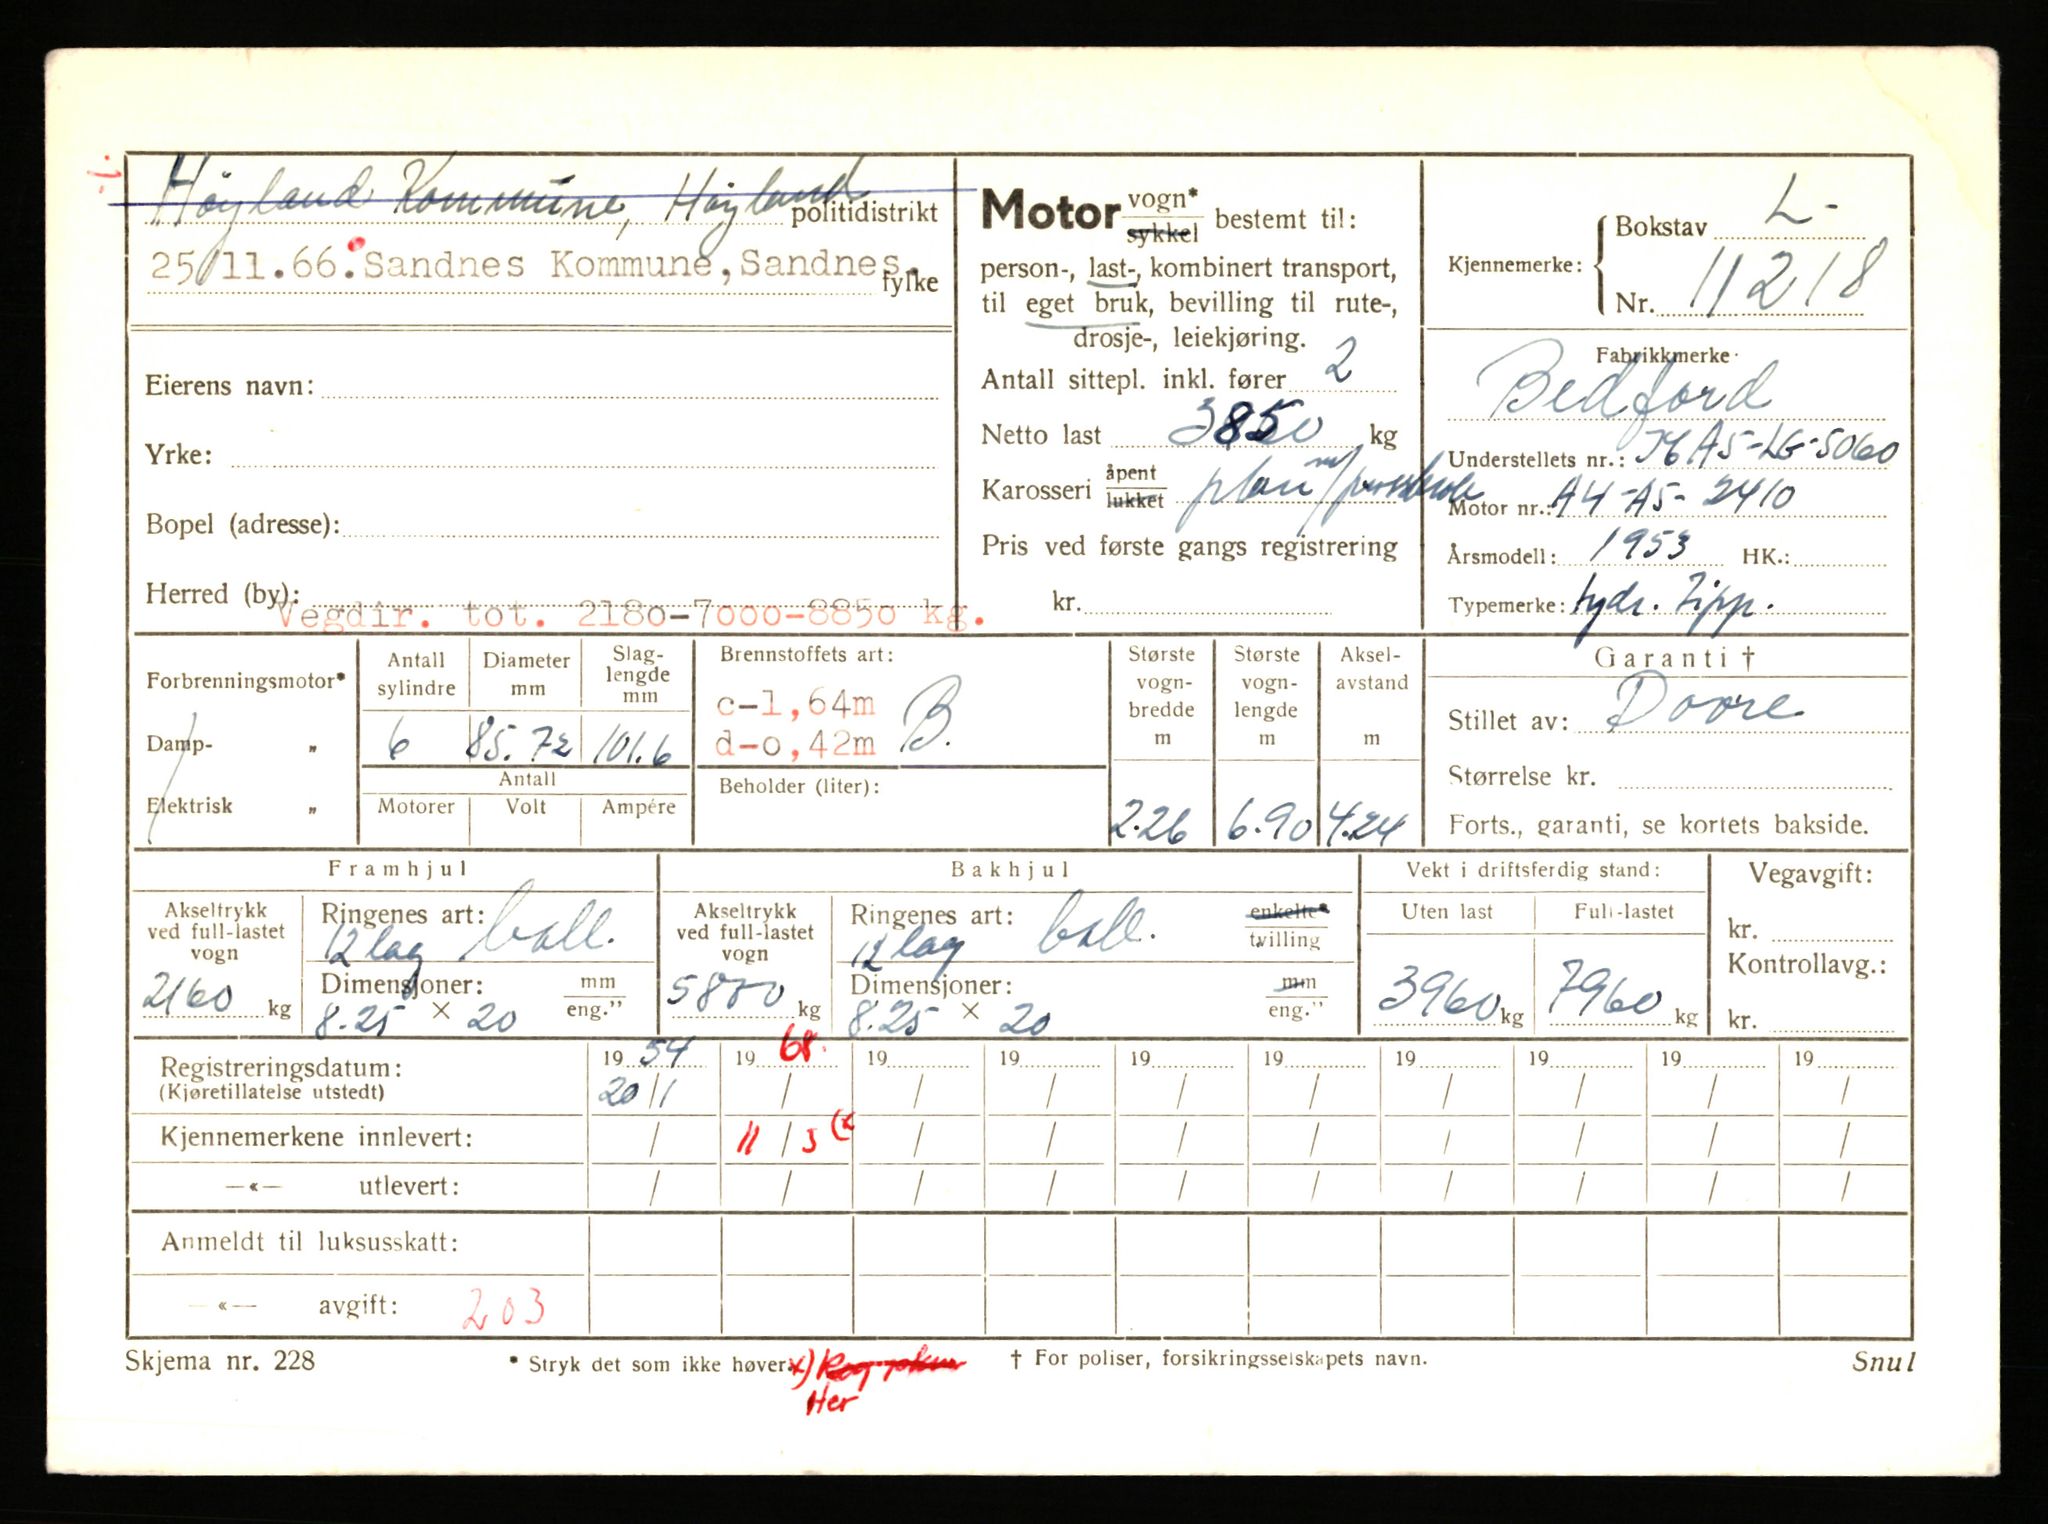 Høyland Kommune, Høyland politidistrikt
25/11.66. Sandnes Kommune, Sandnes. fylke
Eierens navn:
Yrke:
Bopel (adresse):
Herred (by):
Vegdir. tot. 2180-7000-8850 kg.
Motor vogn* sykkel bestemt til:
person-, last-, kombinert transport,
til eget bruk, bevilling til rute-,
drosje-, leiekjøring.
Antall sittepl. inkl. fører 2
Netto last 3850 kg
Karosseri åpent lukket plan m/
Pris ved første gangs registrering
kr.
Kjennemerke: Bokstav L-
Nr. 11218
Fabrikkmerke
Bedford
Understellets nr.: A5-LG-5060
Motor nr.: A4-A5-2410
Årsmodell: 1953 HK.:
Typemerke: hydr. tipp.
Forbrenningsmotor*
Damp- „
Elektrisk „
Antall sylindre
Diameter mm
Slag-lengde mm
6 85.72 101.6
Antall
Motorer Volt Ampére
Brennstoffets art:
c-1,64m B.
d-0,42m
Beholder (liter):
Største vogn-bredde m
2.26
Største vogn-lengde m
6.90
Aksel-avstand m
4.24
Garanti †
Stillet av: Doore
Størrelse kr.
Forts., garanti, se kortets bakside.
Framhjul
Akseltrykk ved full-lastet vogn
2160 kg
Ringenes art: ball.
12 lag
Dimensjoner: mm eng."
8.25 × 20
Bakhjul
Akseltrykk ved full-lastet vogn
5800 kg
Ringenes art: ball. enkelte* tvilling
12 lag
Dimensjoner: mm eng."
8.25 × 20
Vekt i driftsferdig stand:
Uten last Full-lastet
3960 kg 7960 kg
Vegavgift:
kr.
Kontrollavg.:
kr.
Registreringsdatum: 19 54 19 68. 19 19 19 19 19 19 19 19
(Kjøretillatelse utstedt) 20/1 / / / / / / / / /
Kjennemerkene innlevert: / 11/3 (x / / / / / / / /
—«— utlevert: / / / / / / / / / /
Anmeldt til luksusskatt:
—«— avgift: 203
Skjema nr. 228 * Stryk det som ikke høver. x) † For poliser, forsikringsselskapets navn. Snul
Her